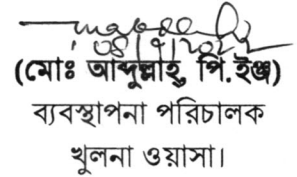 (মোঃ আব্দুল্লাহ্ পি.ইঞ্জ)
ব্যবস্থাপনা পরিচালক
খুলনা ওয়াসা।